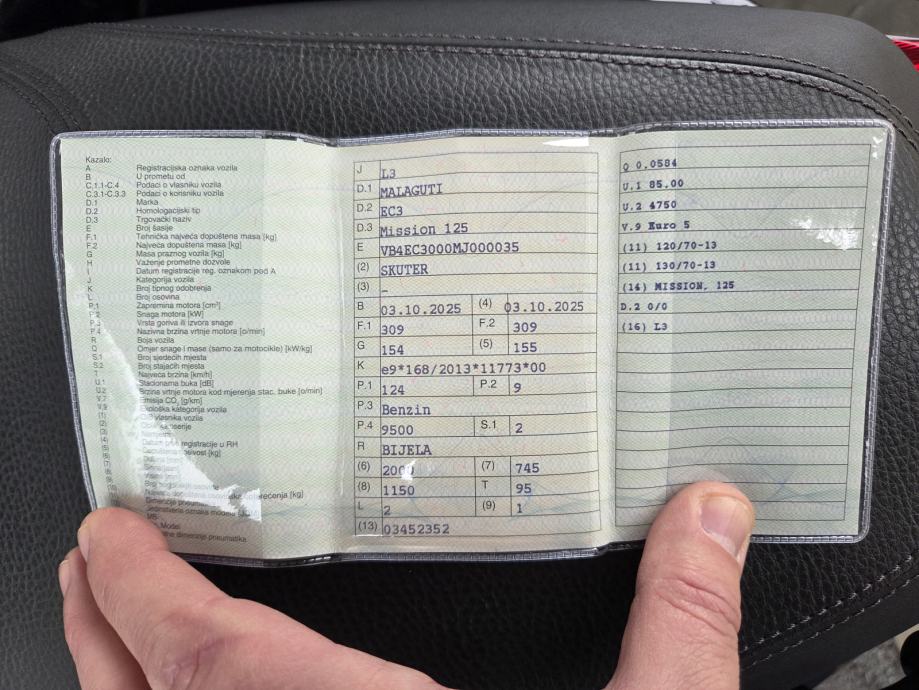 Kazalo:
A Registracijska oznaka vozila
B U prometu od
C.1.1-C.4 Podaci o vlasniku vozila
C.3.1-C.3.3 Podaci o korisniku vozila
D.1 Marka
D.2 Homologacijski tip
D.3 Trgovački naziv
E Broj šasije
F.1 Tehnička najveća dopuštena masa [kg]
F.2 Najveća dopuštena masa [kg]
G Masa praznog vozila [kg]
H Važenje prometne dozvole
I Datum registracije reg. oznakom pod A
J Kategorija vozila
K Broj tipnog odobrenja
L Broj osovina
P.1 Zapremina motora [cm³]
P.2 Snaga motora [kW]
P.3 Vrsta goriva ili izvora snage
P.4 Nazivna brzina vrtnje motora [o/min]
R Boja vozila
Q Omjer snage i mase (samo za motocikle) [kW/kg]
S.1 Broj sjedećih mjesta
S.2 Broj stajaćih mjesta
T Najveća brzina [km/h]
U.1 Stacionarna buka [dB]
U.2 Brzina vrtnje motora kod mjerenja stac. buke [o/min]
V.7 Emisija CO₂ [g/km]
V.9 Ekološka kategorija vozila
(1) vlasnika vozila
(2)
(3)
(4) registracije u RH
(5) [kg]
(6)
(7)
(8)
[kg]
Model
dimenzije pneumatika
J L3
D.1 MALAGUTI
D.2 EC3
D.3 Mission 125
E VB4EC3000MJ000035
(2) SKUTER
(3) –
B 03.10.2025 (4) 03.10.2025
F.1 309 F.2 309
G 154 (5) 155
K e9*168/2013*11773*00
P.1 124 P.2 9
P.3 Benzin
P.4 9500 S.1 2
R BIJELA
(6) 2000 (7) 745
(8) 1150 T 95
L 2 (9) 1
(13) 03452352
Q 0.0584
U.1 85.00
U.2 4750
V.9 Euro 5
(11) 120/70-13
(11) 130/70-13
(14) MISSION, 125
D.2 0/0
(16) L3